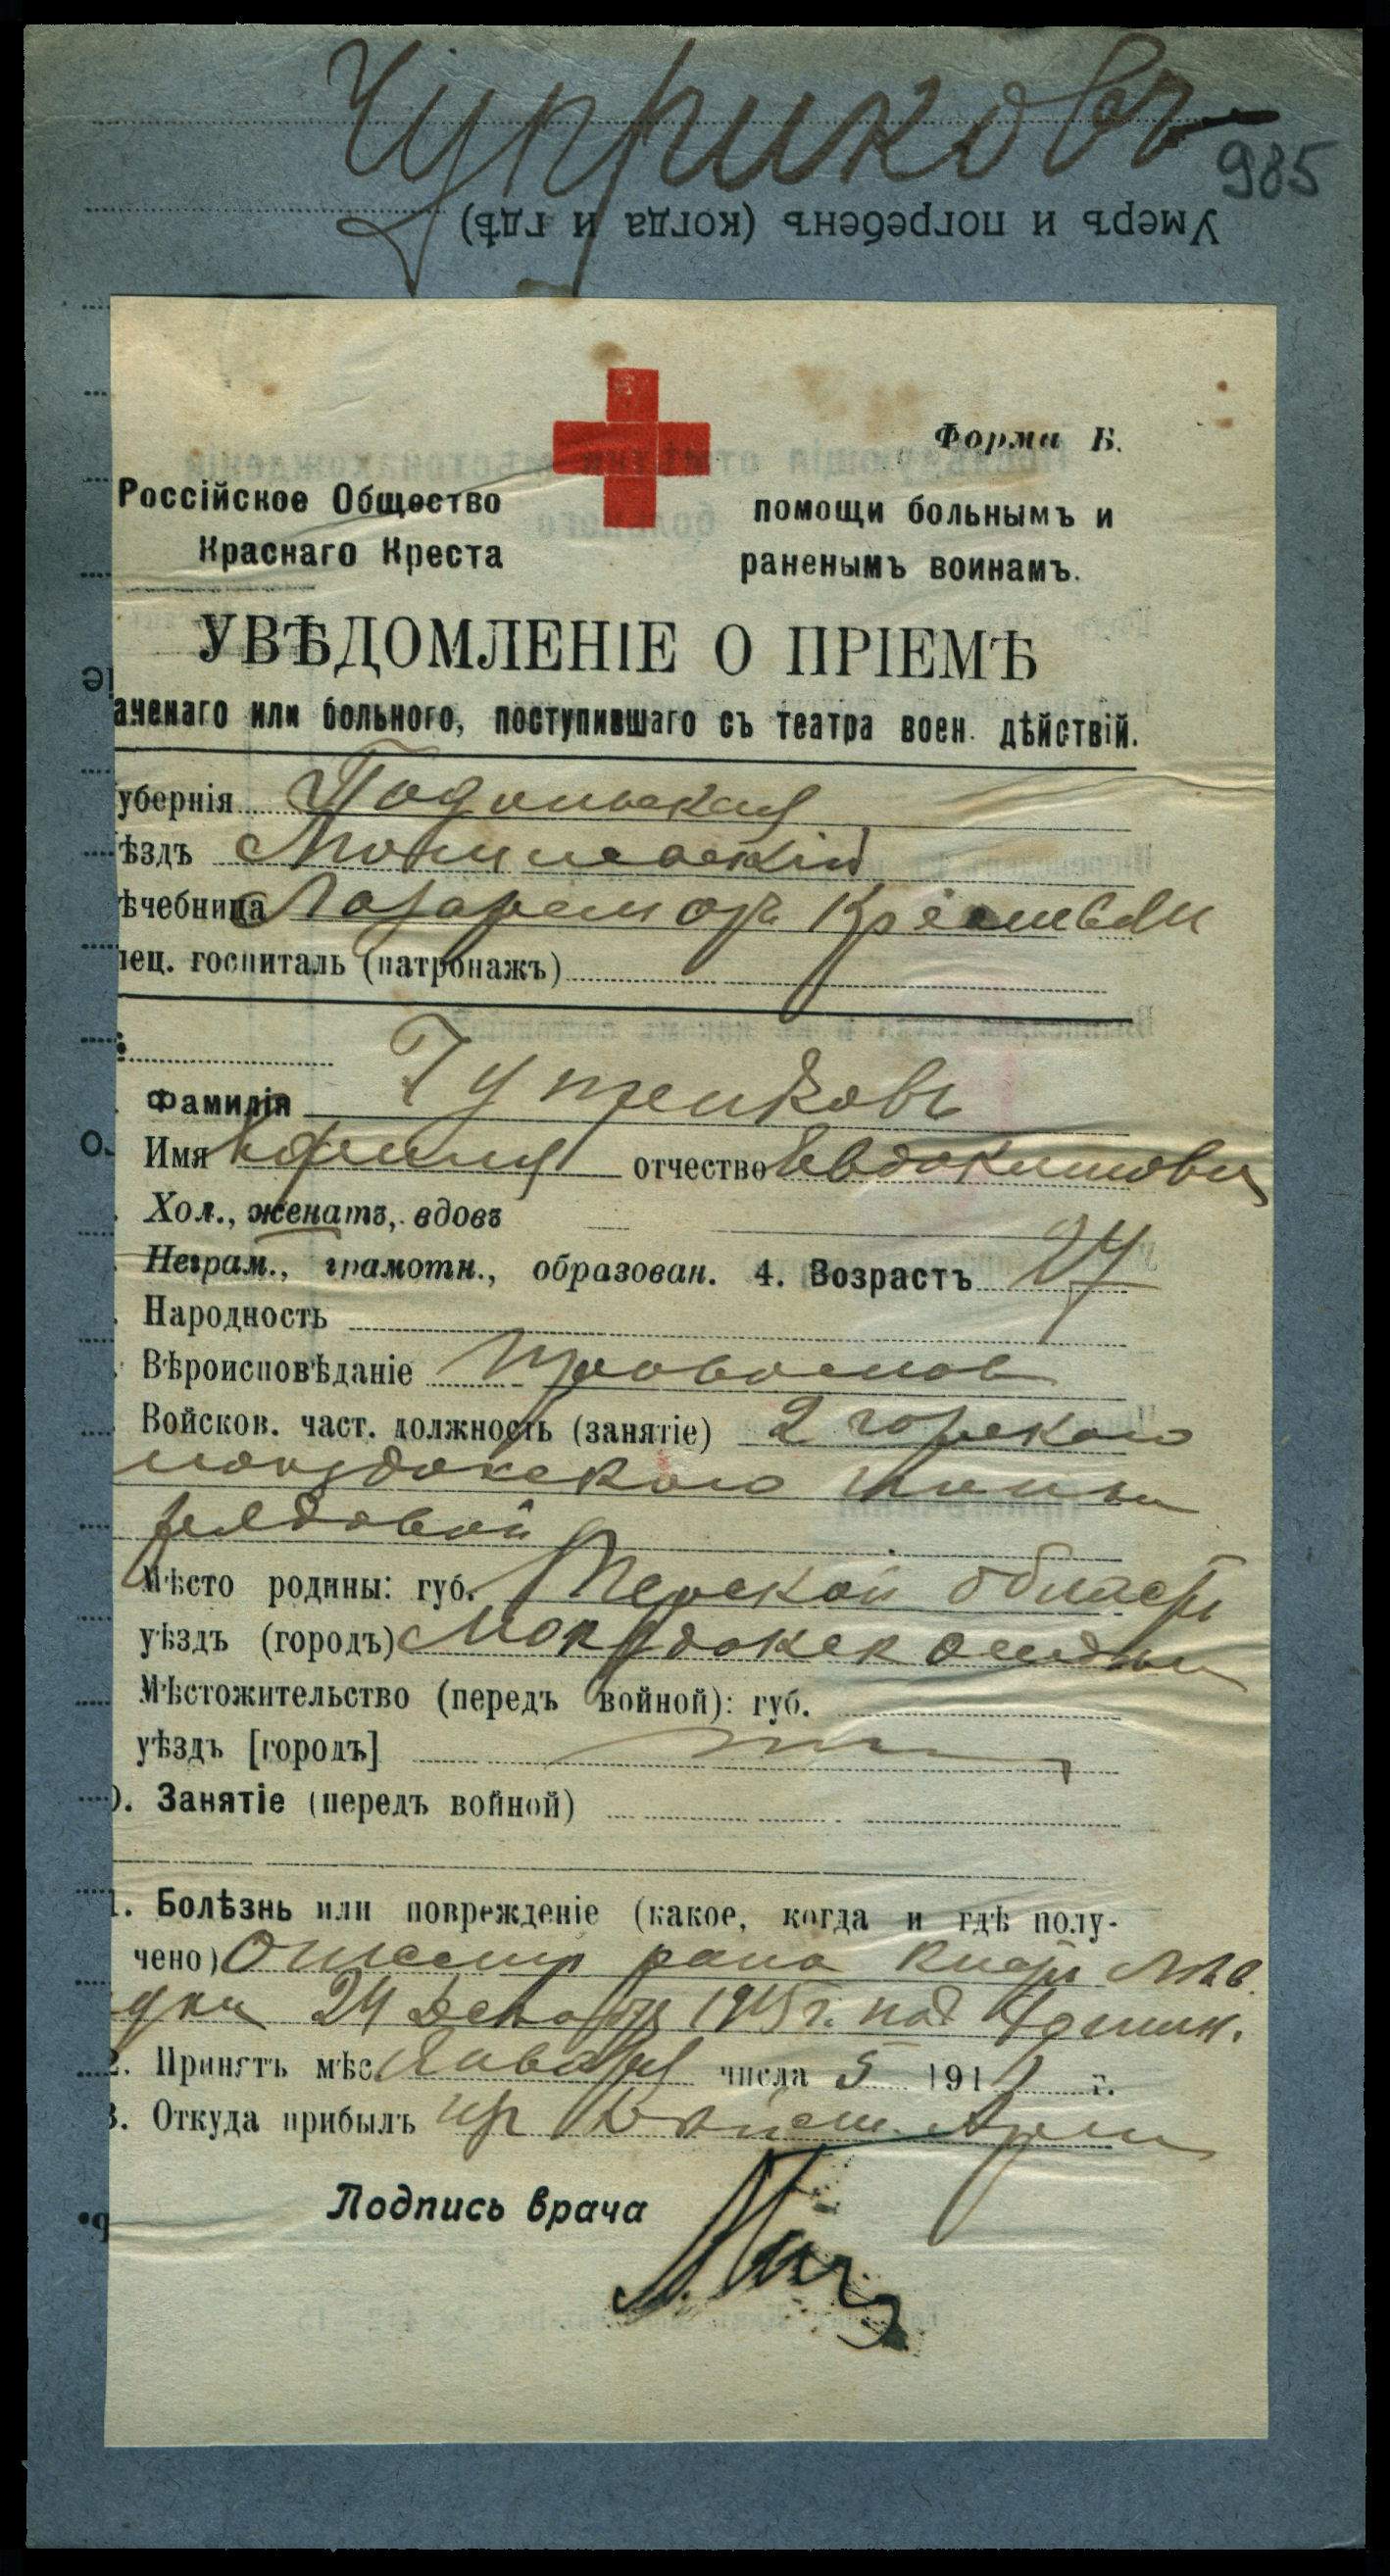 Чуриковъ
985
Умеръ и погребенъ (когда и гдѣ)
Форма Б.
Россійское Общество помощи больнымъ и
Краснаго Креста раненымъ воинамъ.
УВѢДОМЛЕНІЕ О ПРІЕМѢ
аненаго или больного, поступившаго съ театра воен. дѣйствій.
убернія Подольская
ѣздъ Могилевскій
ѣчебница Лазарет
пец. госпиталь (патронажъ)
Фамилія
Имя отчество Евдокимовъ
Хол., женатъ, вдовъ
Неграм., грамотн., образован. 4. Возрастъ 24
Народность
Вѣроисповѣданіе Православ
Войсков. част. должность (занятіе) 2 горско
моздокского
рядовой
Мѣсто родины: губ. Терской област
уѣздъ (городъ) Моздокск
Мѣстожительство (передъ войной): губ.
уѣздъ [городъ]
0. Занятіе (передъ войной)
1. Болѣзнь или поврежденіе (какое, когда и гдѣ полу-
чено) рана лѣв.
24 Декабря 1915 г. под
2. Принятъ мѣс. Января числа 5 191 г.
3. Откуда прибылъ из Действ. Арм
Подпись врача